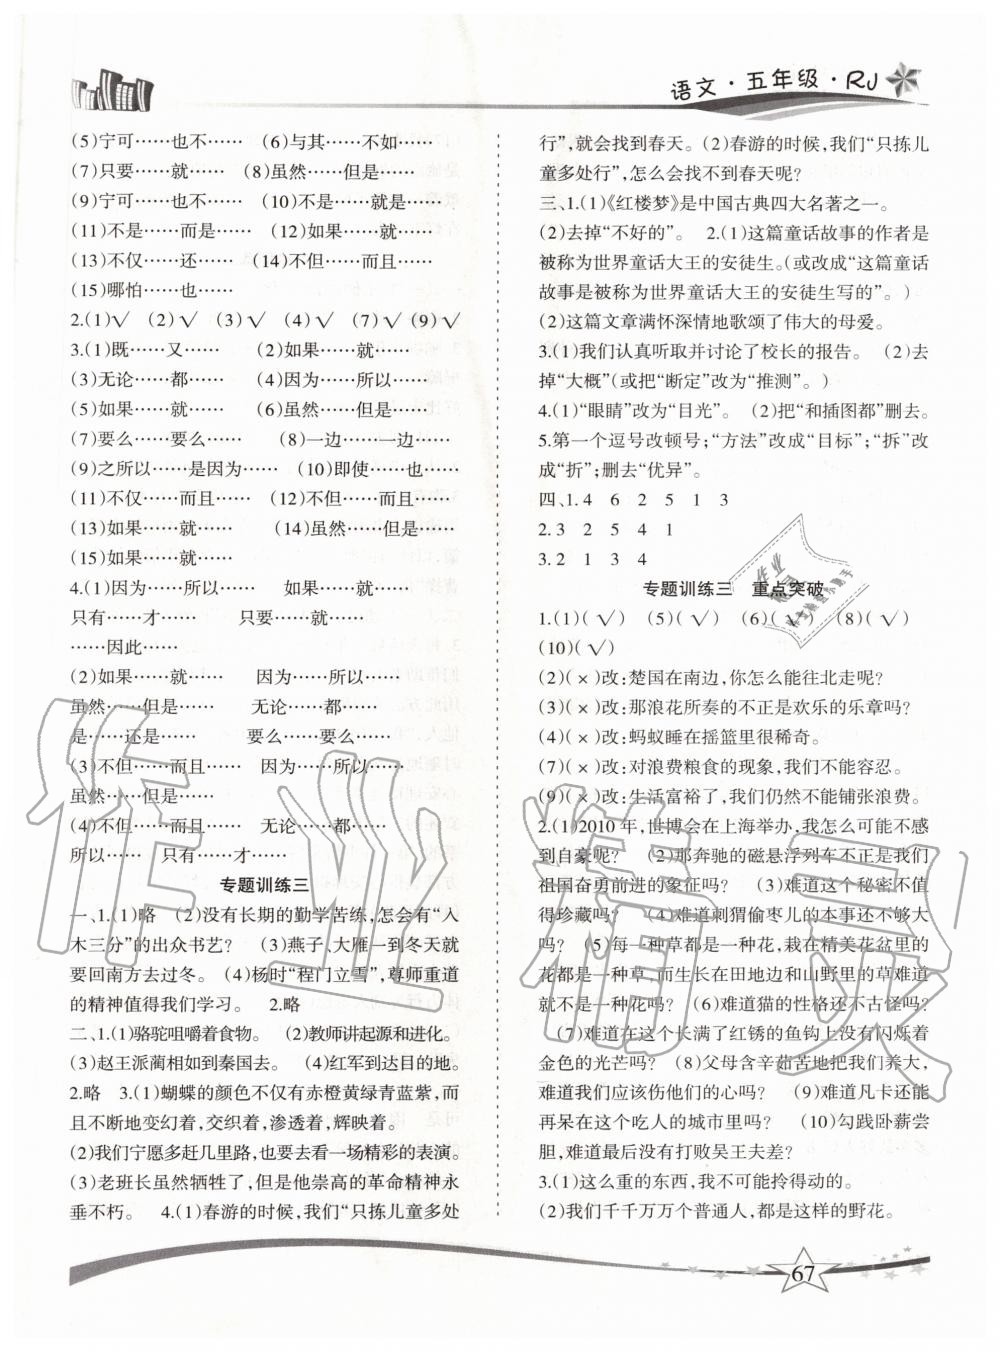 语文·五年级·RJ
(5)宁可……也不……　(6)与其……不如……
(7)只要……就……　(8)虽然……但是……
(9)宁可……也不……　(10)不是……就是……
(11)不是……而是……　(12)如果……就……
(13)不仅……还……　(14)不但……而且……
(15)哪怕……也……
2.(1)√　(2)√　(3)√　(4)√　(7)√　(9)√
3.(1)既……又……　(2)如果……就……
(3)无论……都……　(4)因为……所以……
(5)如果……就……　(6)虽然……但是……
(7)要么……要么……　(8)一边……一边……
(9)之所以……是因为……　(10)即使……也……
(11)不仅……而且……　(12)不但……而且……
(13)如果……就……　(14)虽然……但是……
(15)如果……就……
4.(1)因为……所以……　如果……就……
只有……才……　只要……就……
……因此……
(2)如果……就……　因为……所以……
虽然……但是……　无论……都……
是……还是……　要么……要么……
(3)不但……而且……　因为……所以……
虽然……但是……
(4)不但……而且……　无论……都……
所以……　只有……才……
专题训练三
一、1.(1)略　(2)没有长期的勤学苦练,怎会有“入
木三分”的出众书艺?　(3)燕子、大雁一到冬天就
要回南方去过冬。　(4)杨时“程门立雪”,尊师重道
的精神值得我们学习。　2.略
二、1.(1)骆驼咀嚼着食物。　(2)教师讲起源和进化。
(3)赵王派蔺相如到秦国去。　(4)红军到达目的地。
2.略　3.(1)蝴蝶的颜色不仅有赤橙黄绿青蓝紫,而
且不断地变幻着,交织着,渗透着,辉映着。
(2)我们宁愿多赶几里路,也要去看一场精彩的表演。
(3)老班长虽然牺牲了,但是他崇高的革命精神永
垂不朽。　4.(1)春游的时候,我们“只拣儿童多处
行”,就会找到春天。　(2)春游的时候,我们“只拣儿
童多处行”,怎么会找不到春天呢?
三、1.(1)《红楼梦》是中国古典四大名著之一。
(2)去掉“不好的”。　2.(1)这篇童话故事的作者是
被称为世界童话大王的安徒生。(或改成“这篇童话
故事是被称为世界童话大王的安徒生写的”。)
(2)这篇文章满怀深情地歌颂了伟大的母爱。
3.(1)我们认真听取并讨论了校长的报告。　(2)去
掉“大概”(或把“断定”改为“推测”。)
4.(1)“眼睛”改为“目光”。　(2)把“和插图都”删去。
5.第一个逗号改顿号;“方法”改成“目标”;“拆”改
成“折”;删去“优异”。
四、1.4　6　2　5　1　3
2.3　2　5　4　1
3.2　1　3　4
专题训练三　重点突破
1.(1)(√)　(5)(√)　(6)(√)　(8)(√)
(10)(√)
(2)(×)改:楚国在南边,你怎么能往北走呢?
(3)(×)改:那浪花所奏的不正是欢乐的乐章吗?
(4)(×)改:蚂蚁睡在摇篮里很稀奇。
(7)(×)改:对浪费粮食的现象,我们不能容忍。
(9)(×)改:生活富裕了,我们仍然不能铺张浪费。
2.(1)2010年,世博会在上海举办,我怎么可能不感
到自豪呢?　(2)那奔驰的磁悬浮列车不正是我们
祖国奋勇前进的象征吗?　(3)难道这个秘密不值
得珍藏吗?　(4)难道刺猬偷枣儿的本事还不够大
吗?　(5)每一种草都是一种花,栽在精美花盆里的
花都是一种草,而生长在田地边和山野里的草难道
就不是一种花吗?　(6)难道猫的性格还不古怪吗?
(7)难道在这个长满了红锈的鱼钩上没有闪烁着
金色的光芒吗?　(8)父母含辛茹苦地把我们养大,
难道我们应该伤他们的心吗?　(9)难道凡卡还能
再呆在这个吃人的城市里吗?　(10)勾践卧薪尝
胆,难道最后没有打败吴王夫差?
3.(1)这么重的东西,我不可能拎得动的。
(2)我们千千万万个普通人,都是这样的野花。
67
作业精灵